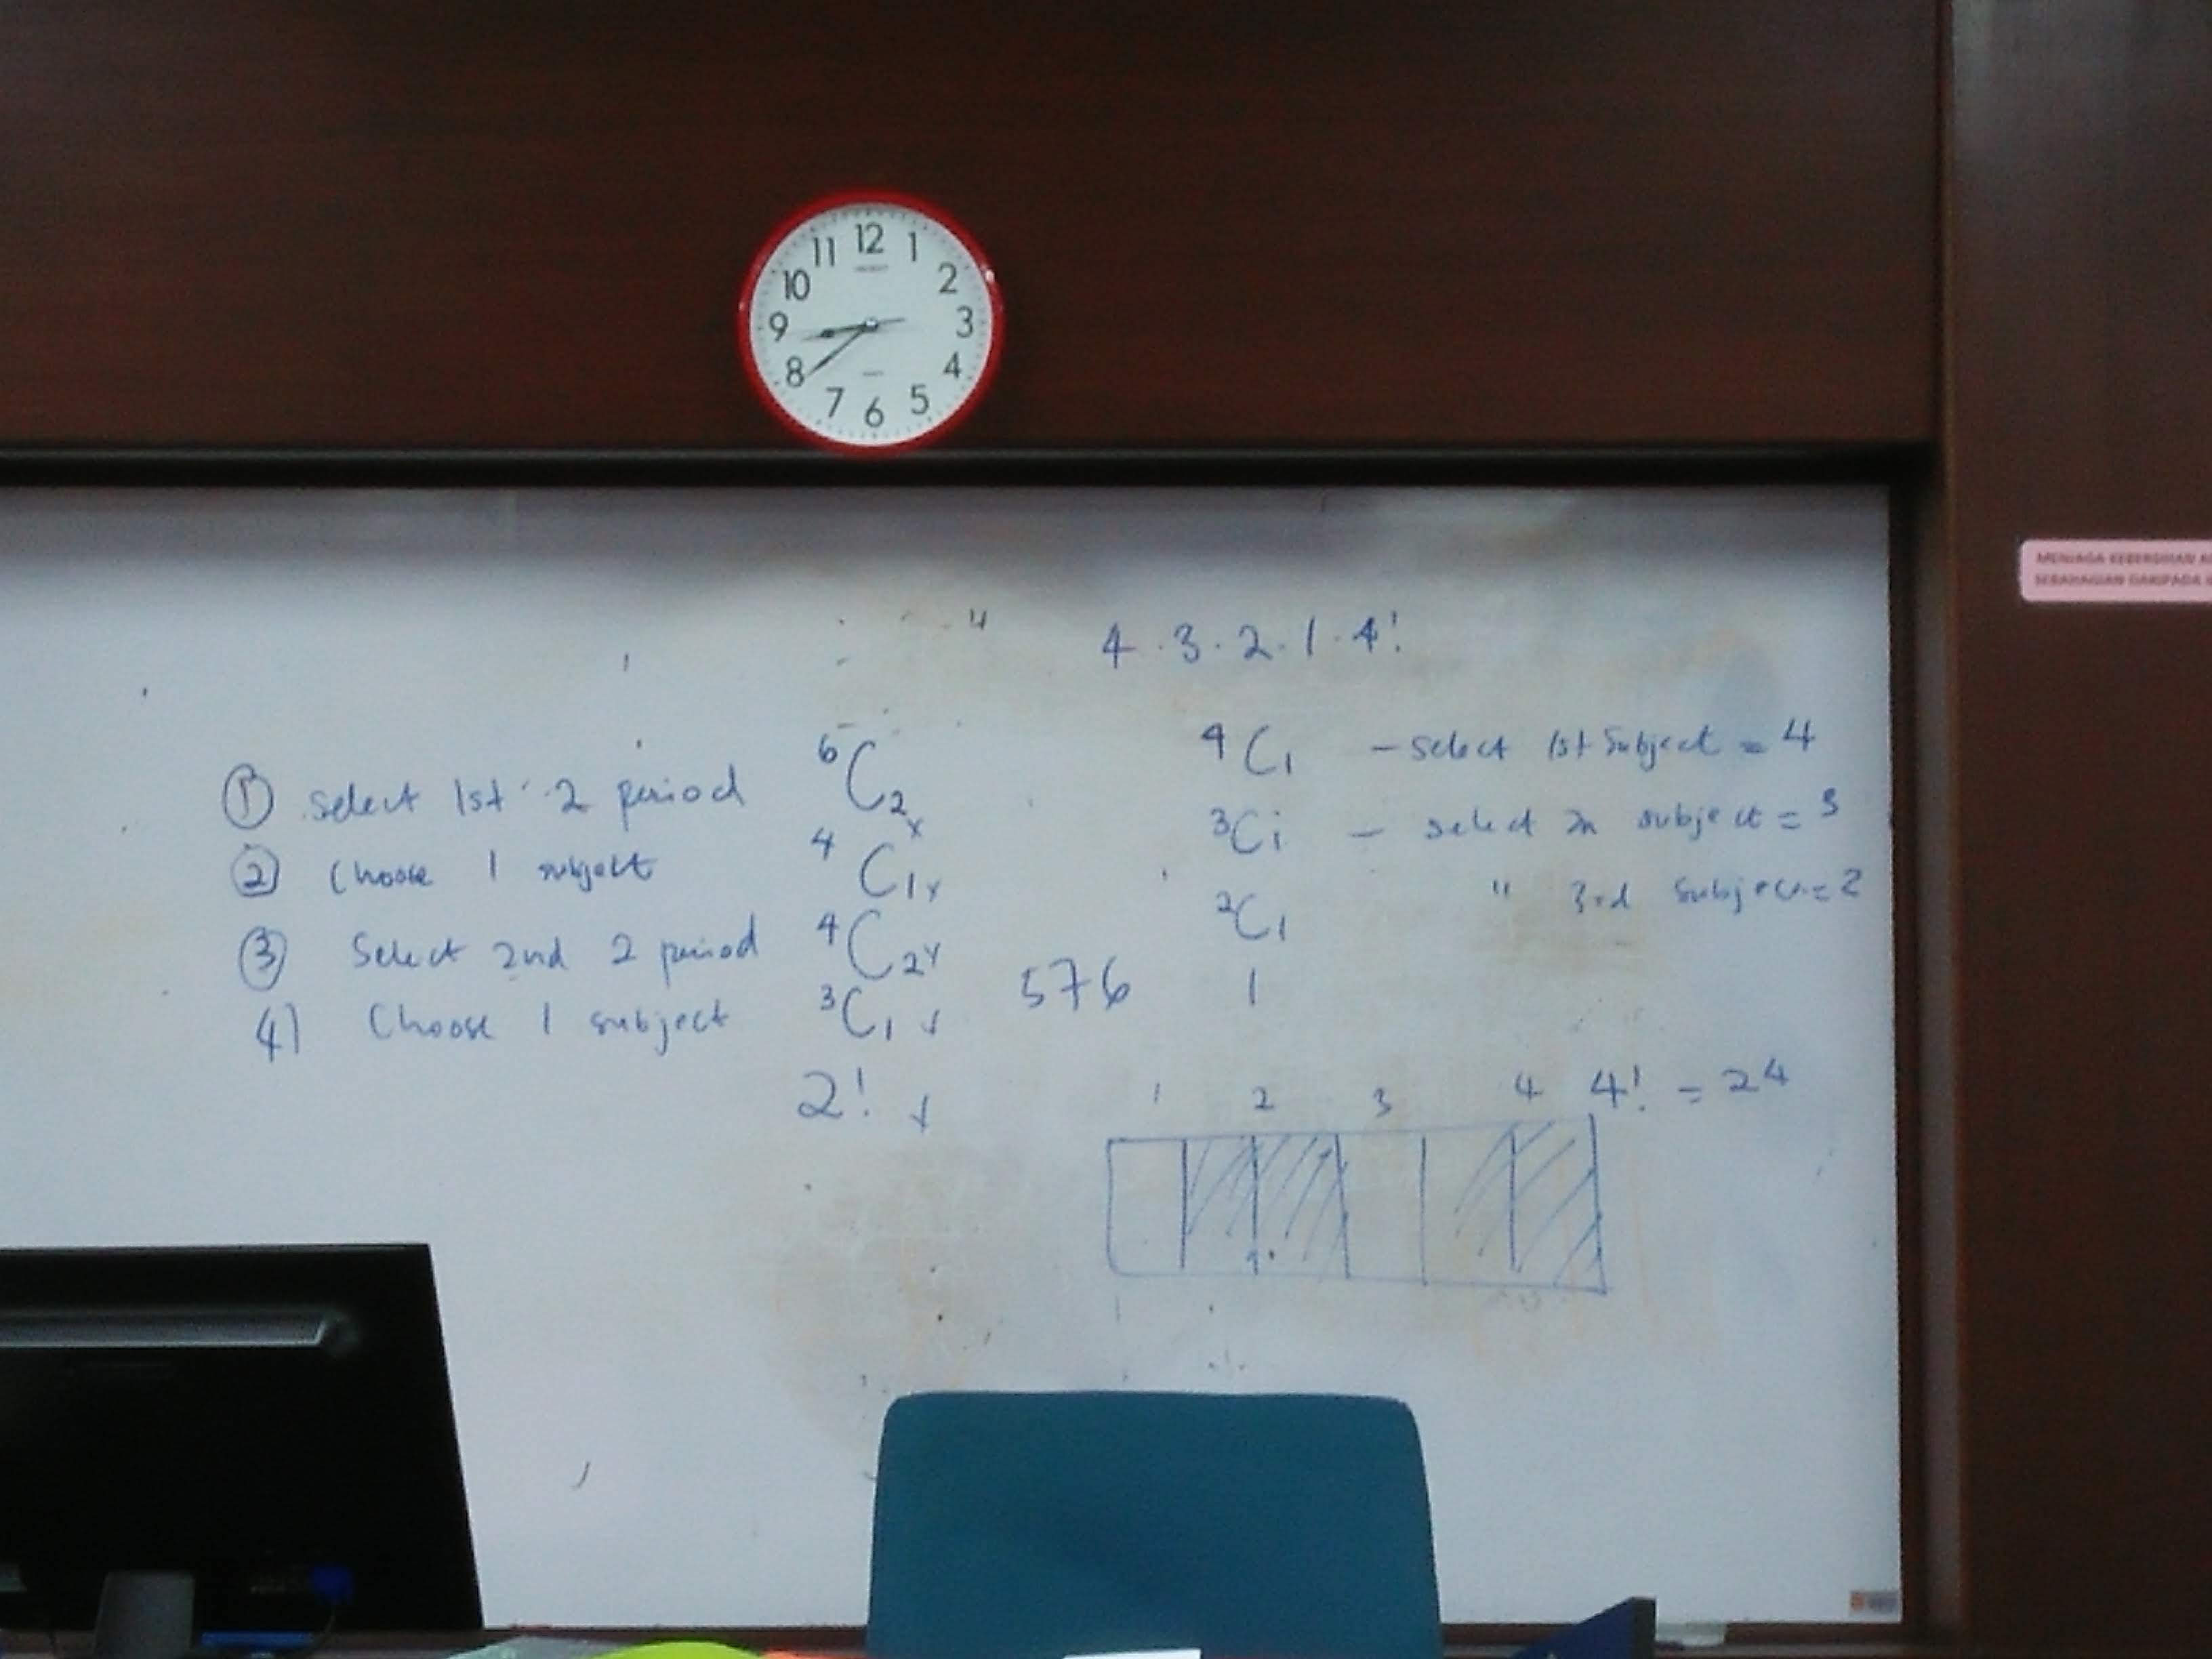 12
11 1
10 2
9 3
8 4
7 5
6
MENJAGA KEBERSIHAN
SEBAHAGIAN DARIPADA
4 . 3 . 2 . 1 . 4!
① select 1st 2 period ⁶C₂ x
② Choose 1 subject ⁴C₁ x
③ Select 2nd 2 period ⁴C₂ x
4) Choose 1 subject ³C₁ x
2! x
576
⁴C₁ – select 1st subject = 4
³C₁ – select 2n subject = 3
²C₁ " 3rd subject = 2
1
1 2 3 4 4! = 24